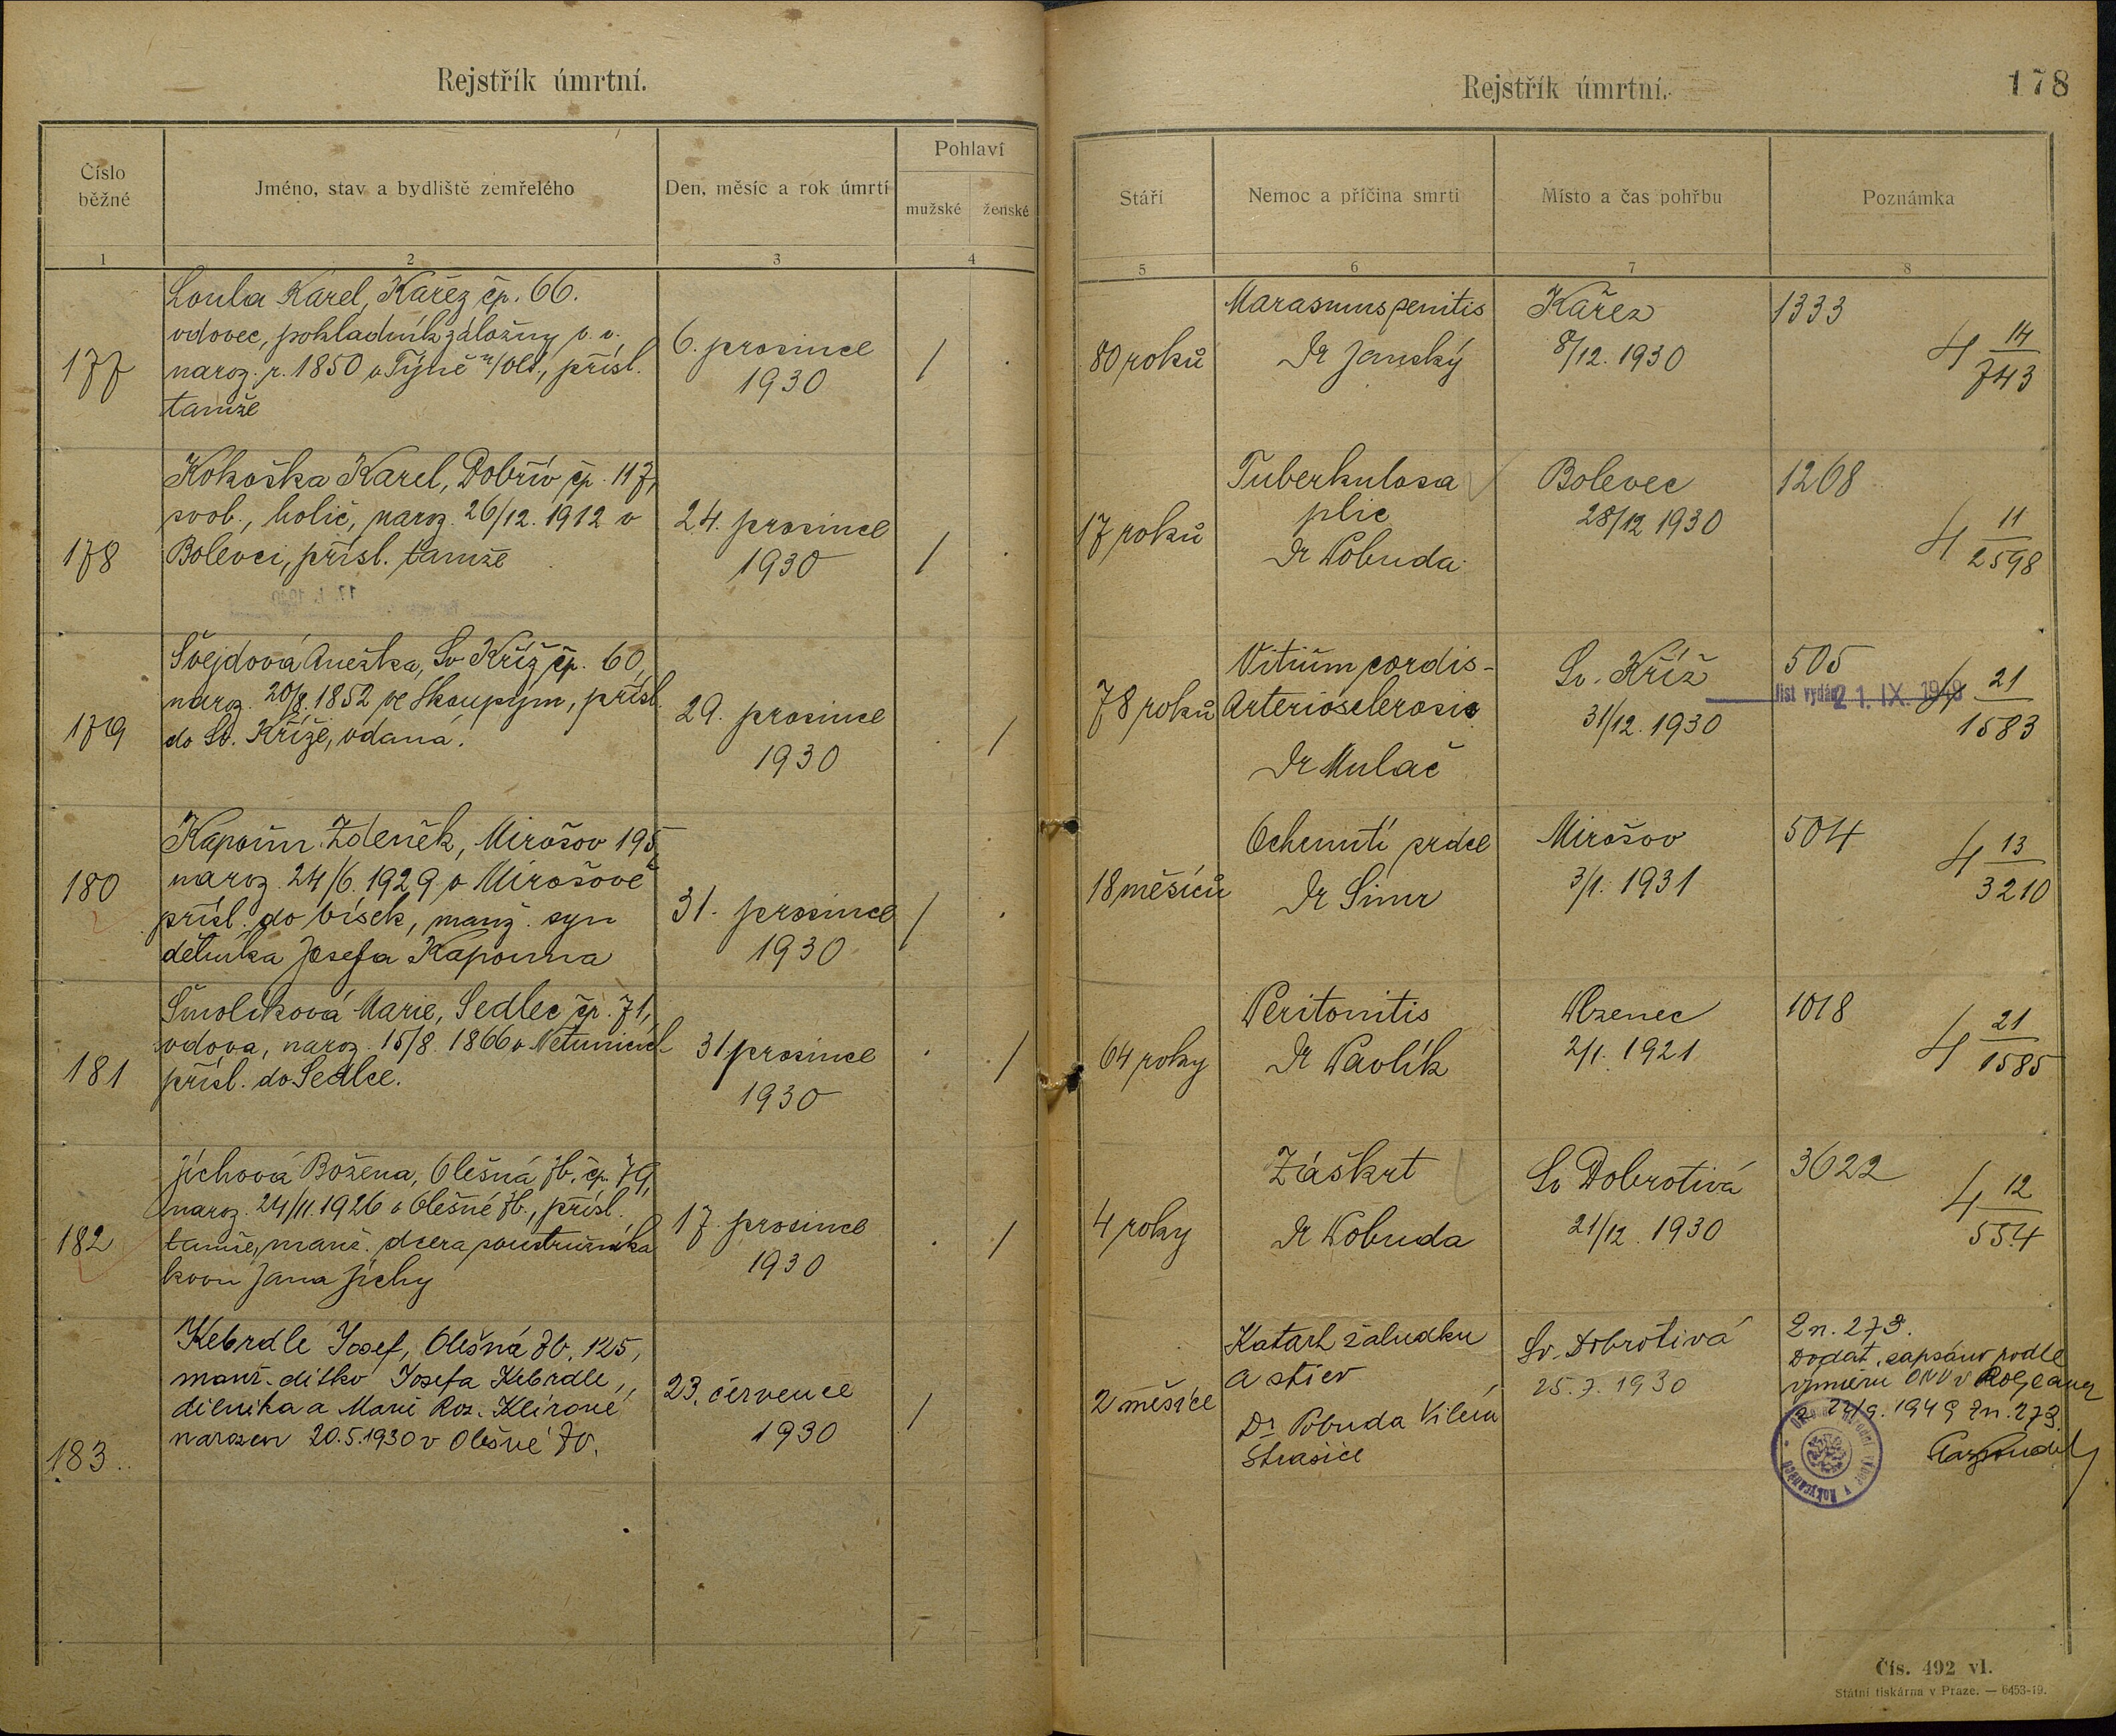 Rejstřík úmrtní.
Číslo běžné
Jméno, stav a bydliště zemřelého
Den, měsíc a rok úmrtí
Pohlaví
mužské
ženské
1
2
3
4
177
Loula Karel, Kařez čp. 66.
vdovec, pokladník záložny v. v.
naroz. r. 1850 v Týně n/Vlt., přísl.
tamže
6. prosince
1930
/
.
178
Kokoška Karel, Dobřív čp. 117,
svob., holič, naroz. 26/12. 1912 v
Bolevci, přísl. tamže
24. prosince
1930
/
.
179
Švejdová Anežka, Sv. Kříž čp. 60,
naroz. 20/8. 1852 ve Skoupým, přísl.
do Sv. Kříže, vdaná.
29. prosince
1930
.
/
180
Kapoun Zdeněk, Mirošov 195,
naroz. 24/6. 1929 v Mirošově
přísl. do Vísek, manž. syn
dělníka Josefa Kapouna
31. prosince
1930
/
.
181
Smolíková Marie, Sedlec čp. 71,
vdova, naroz. 15/8. 1866 v
přísl. do Sedlce.
31 prosince
1930
.
/
182
Jíchová Božena, Olešná Zb. čp. 79,
naroz. 24/11. 1926 v Olešné Zb., přísl.
tamže, manž. dcera soustružníka
kovu Jana Jíchy
17. prosince
1930
.
/
183.
Kebrdle Josef, Olešná Zb. 125,
manž. dítko Josefa Kebrdle,
dělníka a Marie Roz. Klírové
narozen 20.5.1930 v Olešné Zb.
23. července
1930
/
Rejstřík úmrtní.
178
Stáří
Nemoc a příčina smrti
Místo a čas pohřbu
Poznámka
5
6
7
8
80 roků
Marasmus senilis
Dr Janský
Kařez
8/12. 1930
1333
4 14
743
17 roků
Tuberkulosa
plic
Dr Pobuda
Bolevec
28/12 1930
1268
4 11
2598
78 roků
Vitium cordis-
Arteriosclerosis
Dr Mulač
Sv. Kříž
31/12. 1930
505
list vydán 21. IX. 1949
4 21
1583
18 měsíců
Ochrnutí srdce
Dr Simr
Mirošov
3/1. 1931
504
4 13
3210
64 roky
Peritonitis
Dr Pavlík
Plzenec
2/1. 1921
1018
4 21
1585
4 roky
Záškrt
Dr Pobuda
Sv Dobrotivá
21/12. 1930
3622
4 12
554
2 měsíce
Katarh žaludku
a střev
Dr Pobuda Vilém
Strašice
Sv. Dobrotivá
25.7. 1930
Zn. 273.
Dodat. zapsáno podle
výměru ONV v Rokycanech
22/9. 1949 Zn. 273.
v Rokycanech
Čís. 492 vl.
Státní tiskárna v Praze. — 6453-19.